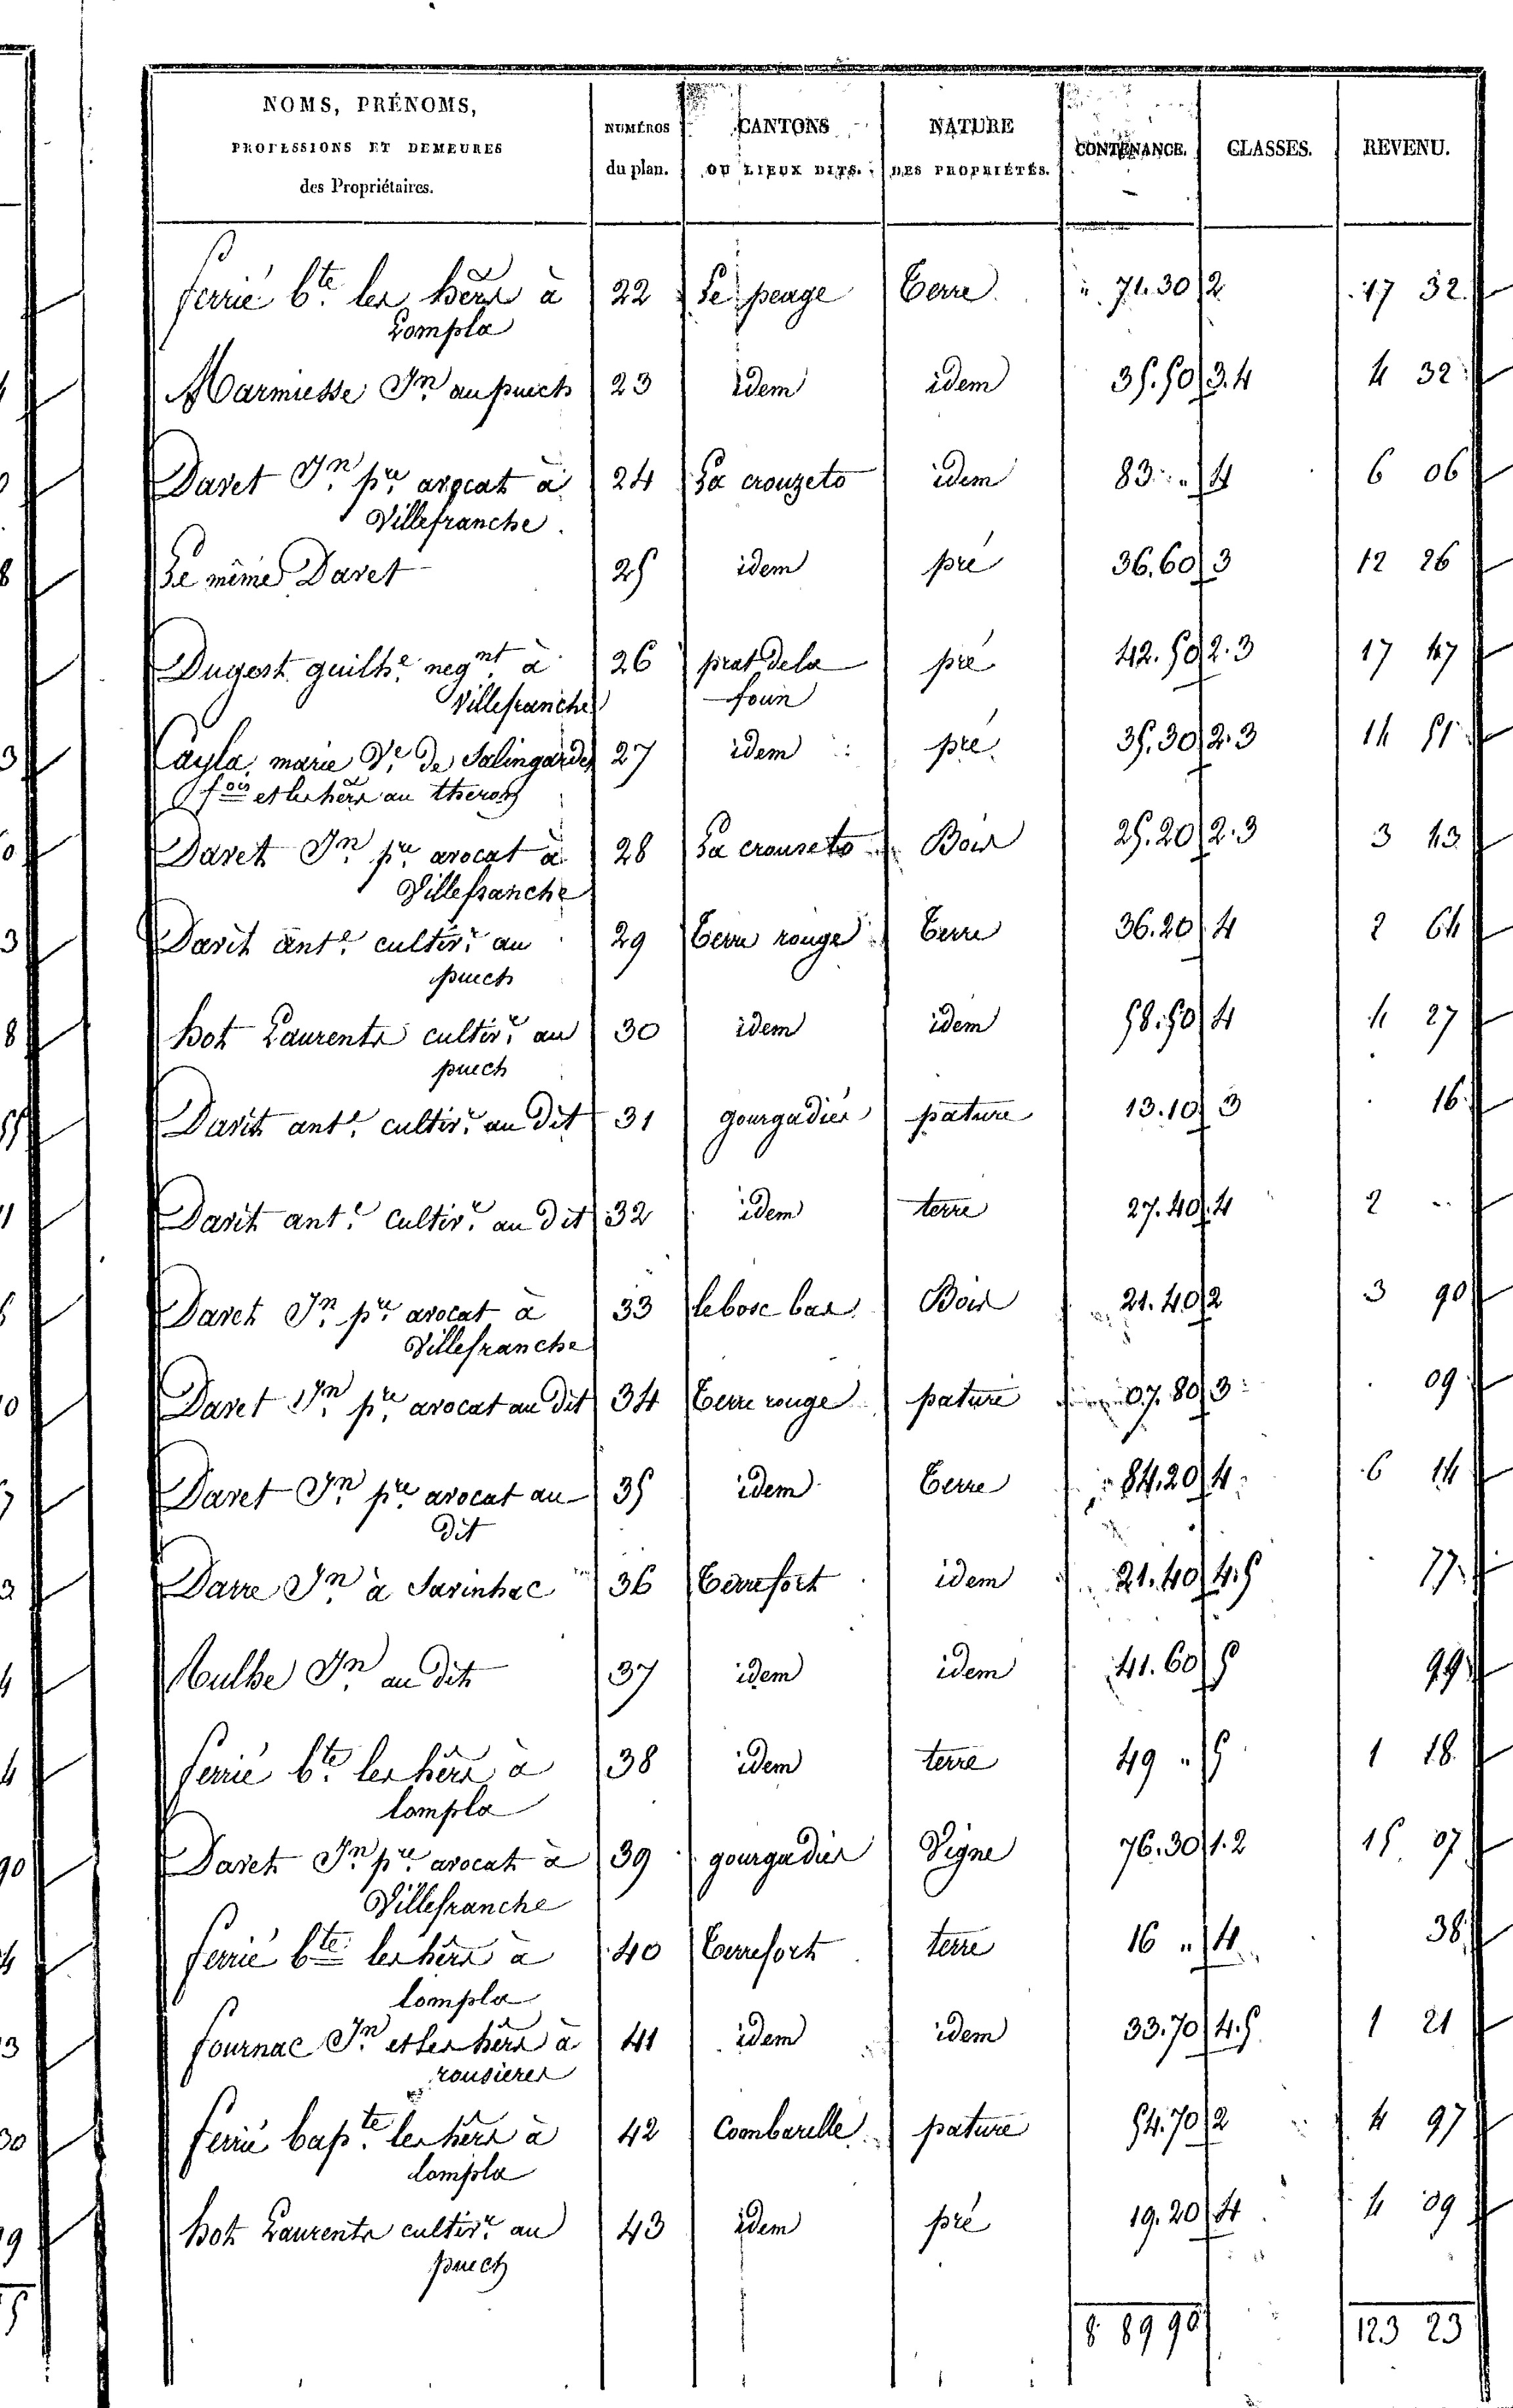 NOMS, PRÉNOMS, PROFESSIONS ET DEMEURES des Propriétaires. NUMÉROS du plan. CANTONS OU LIEUX DITS. NATURE DES PROPRIÉTÉS. CONTENANCE. CLASSES. REVENU.
ferrié bte les hērs à 22 Le peage Terre 71.30 2 17 32
Lompla
Marmiesse Jn au puech 23 idem idem 35.50 3.4 4 32
Davet Jn pre avocat à 24 La crouzeto idem 83 " 4 6 06
Villefranche
Le même Davet 25 idem pré 36.60 3 12 26
Dugest guilhe negnt à 26 prat dela pré 42.50 2.3 17 47
Villefranche foun
Cayla marie Ve de Salingardes 27 idem pré 35.30 2.3 14 51
fois et les hērs au theron
Davet Jn pre avocat à 28 La crouseto Bois 25.20 2.3 3 43
Villefranche
Davit ante cultivr au 29 Terre rouge Terre 36.20 4 2 64
puech
hot Laurents cultivr au 30 idem idem 58.50 4 4 27
puech
Davit ante cultivr au dit 31 gourgadiés pature 13.10 3 16
Davit ante cultivr au dit 32 idem terre 27.40 4 2 "
Davet Jn pre avocat à 33 le bosc bas Bois 21.40 2 3 90
Villefranche
Davet Jn pre avocat au dit 34 Terre rouge pature 07.80 3 09
Davet Jn pre avocat au 35 idem Terre 84.20 4 6 14
dit
Darre Jn à Savinhac 36 Terrefort idem 21.40 4.5 77
Jn au dit 37 idem idem 41.60 5 99
ferrié bte les hērs à 38 idem terre 49 " 5 1 18
lompla
Davet Jn pre avocat à 39 gourgadies Vigne 76.30 1.2 15 07
Villefranche
ferrié bte les hērs à 40 Terrefort terre 16 " 4 38
lompla
fournac Jn et les hērs à 41 idem idem 33.70 4.5 1 21
rousieres
ferrié bapte les hērs à 42 Combarelle pature 54.70 2 4 97
lompla
hot Laurents cultivr au 43 idem pré 19.20 4 4 09
puech
8 89 90 123 23